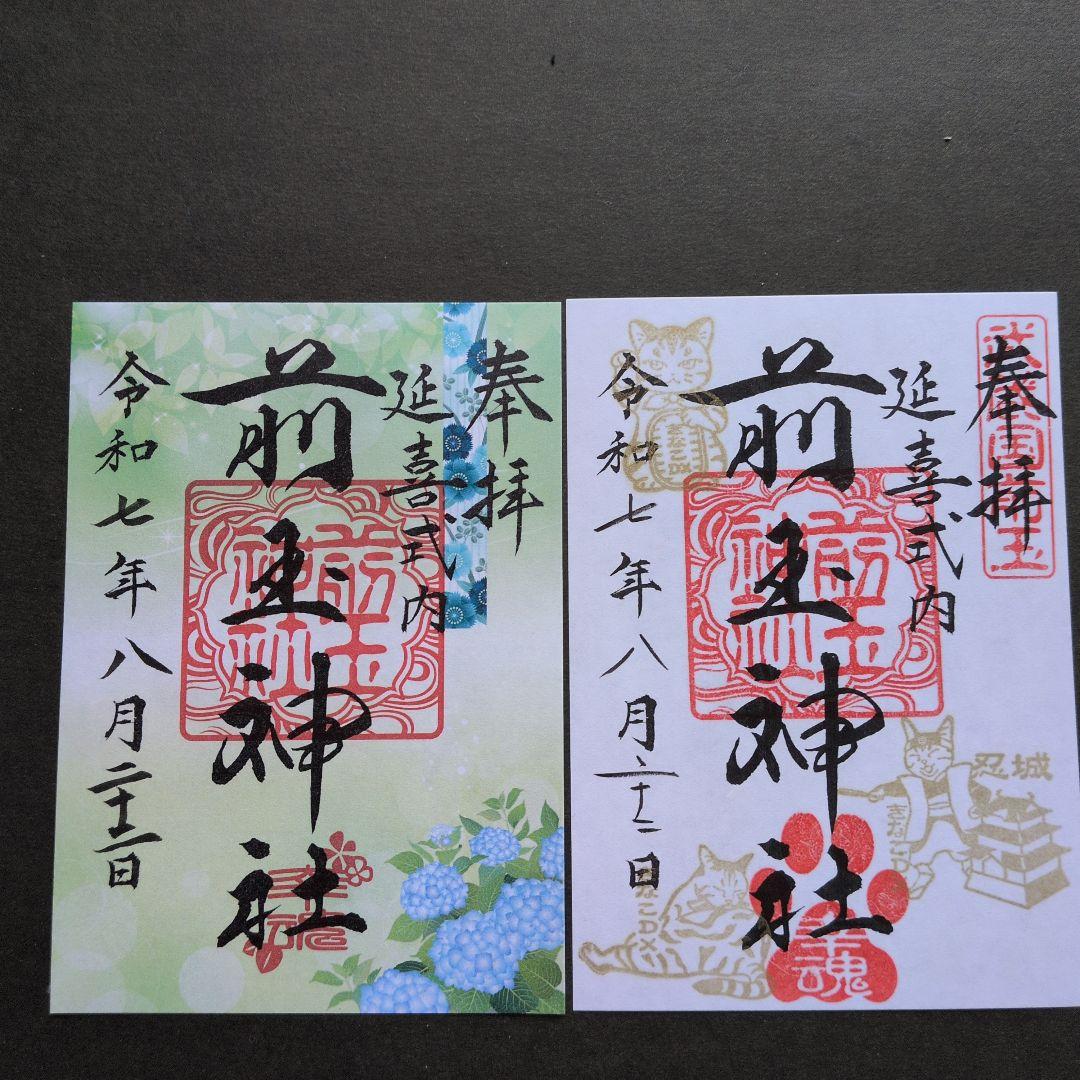 奉拝
延喜式内
前玉神社
前玉神社
幸魂
令和七年八月二十二日
奉拝
延喜式内
前玉神社
前玉神社
幸魂
忍城
きなこ
令和七年八月二十二日